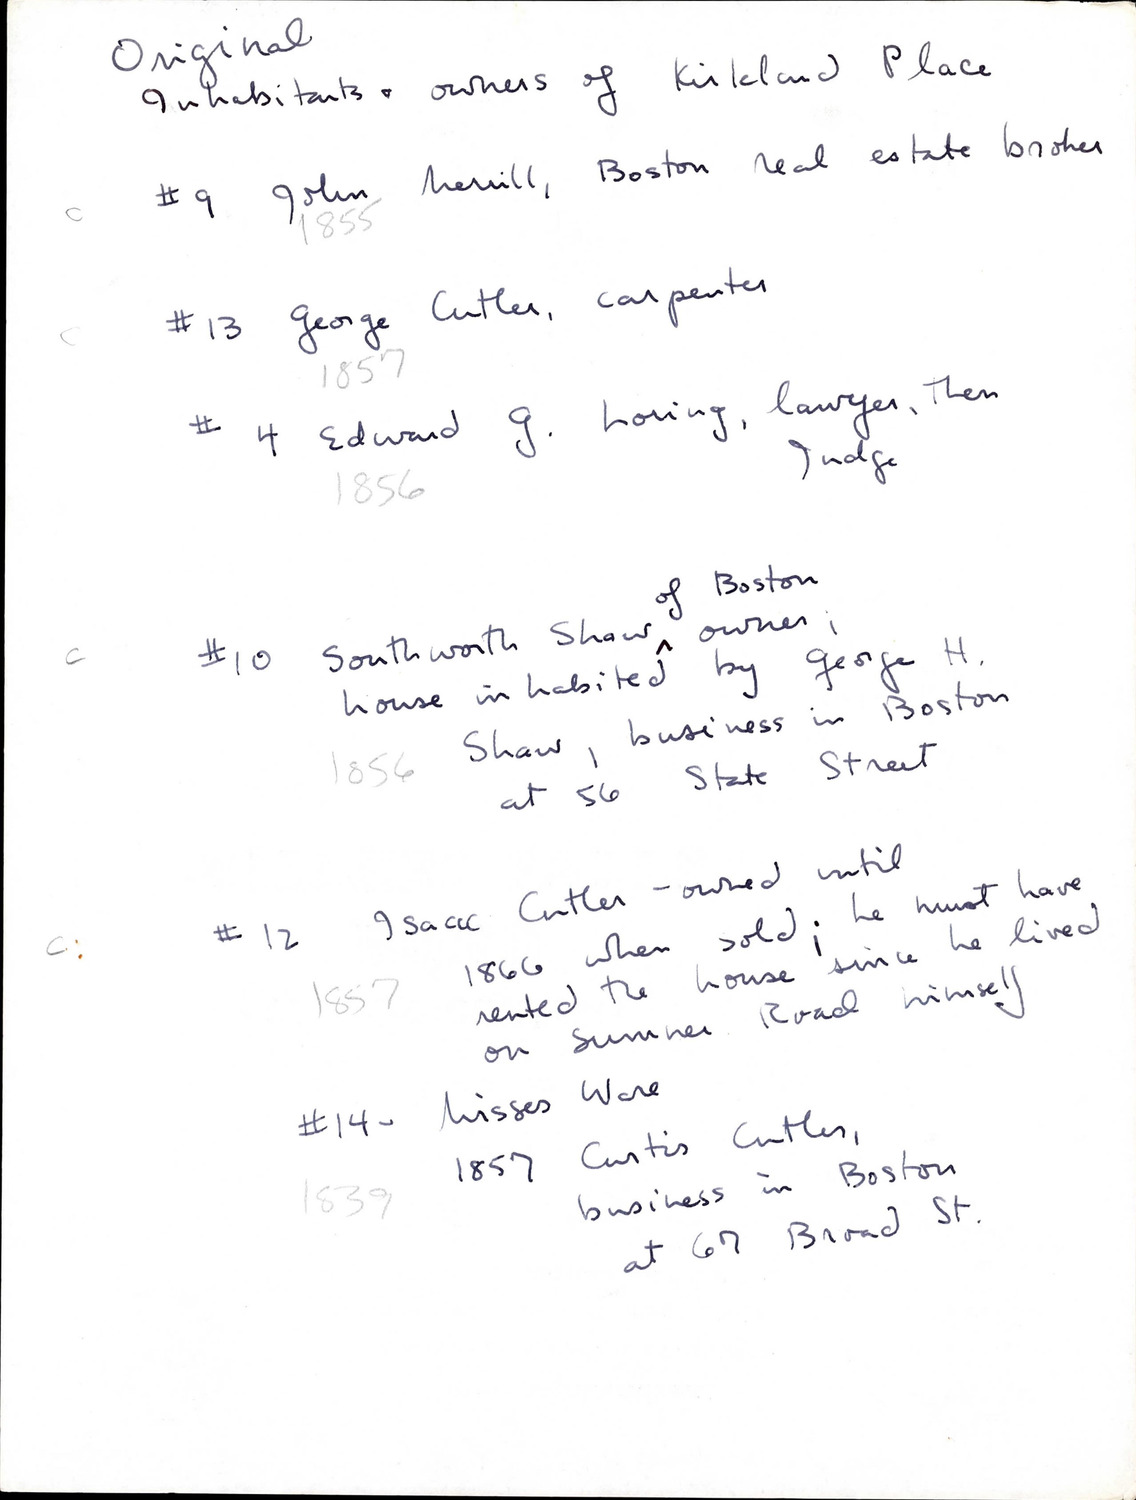 Original
Inhabitants & owners of Kirkland Place
c #9 John Merrill, Boston real estate broker
1855
c #13 George Cutler, carpenter
1857
# 4 Edward G. Loring, lawyer, then
Judge
1856
of Boston
c #10 Southworth Shaw ^ owner;
house inhabited by George H.
1856 Shaw, business in Boston
at 56 State Street
c: #12 Isaac Cutler - owned until
1866 when sold; he must have
1857 rented the house since he lived
on Sumner Road himself
#14- Misses Ware
1857 Curtis Cutler,
1839 business in Boston
at 67 Broad St.